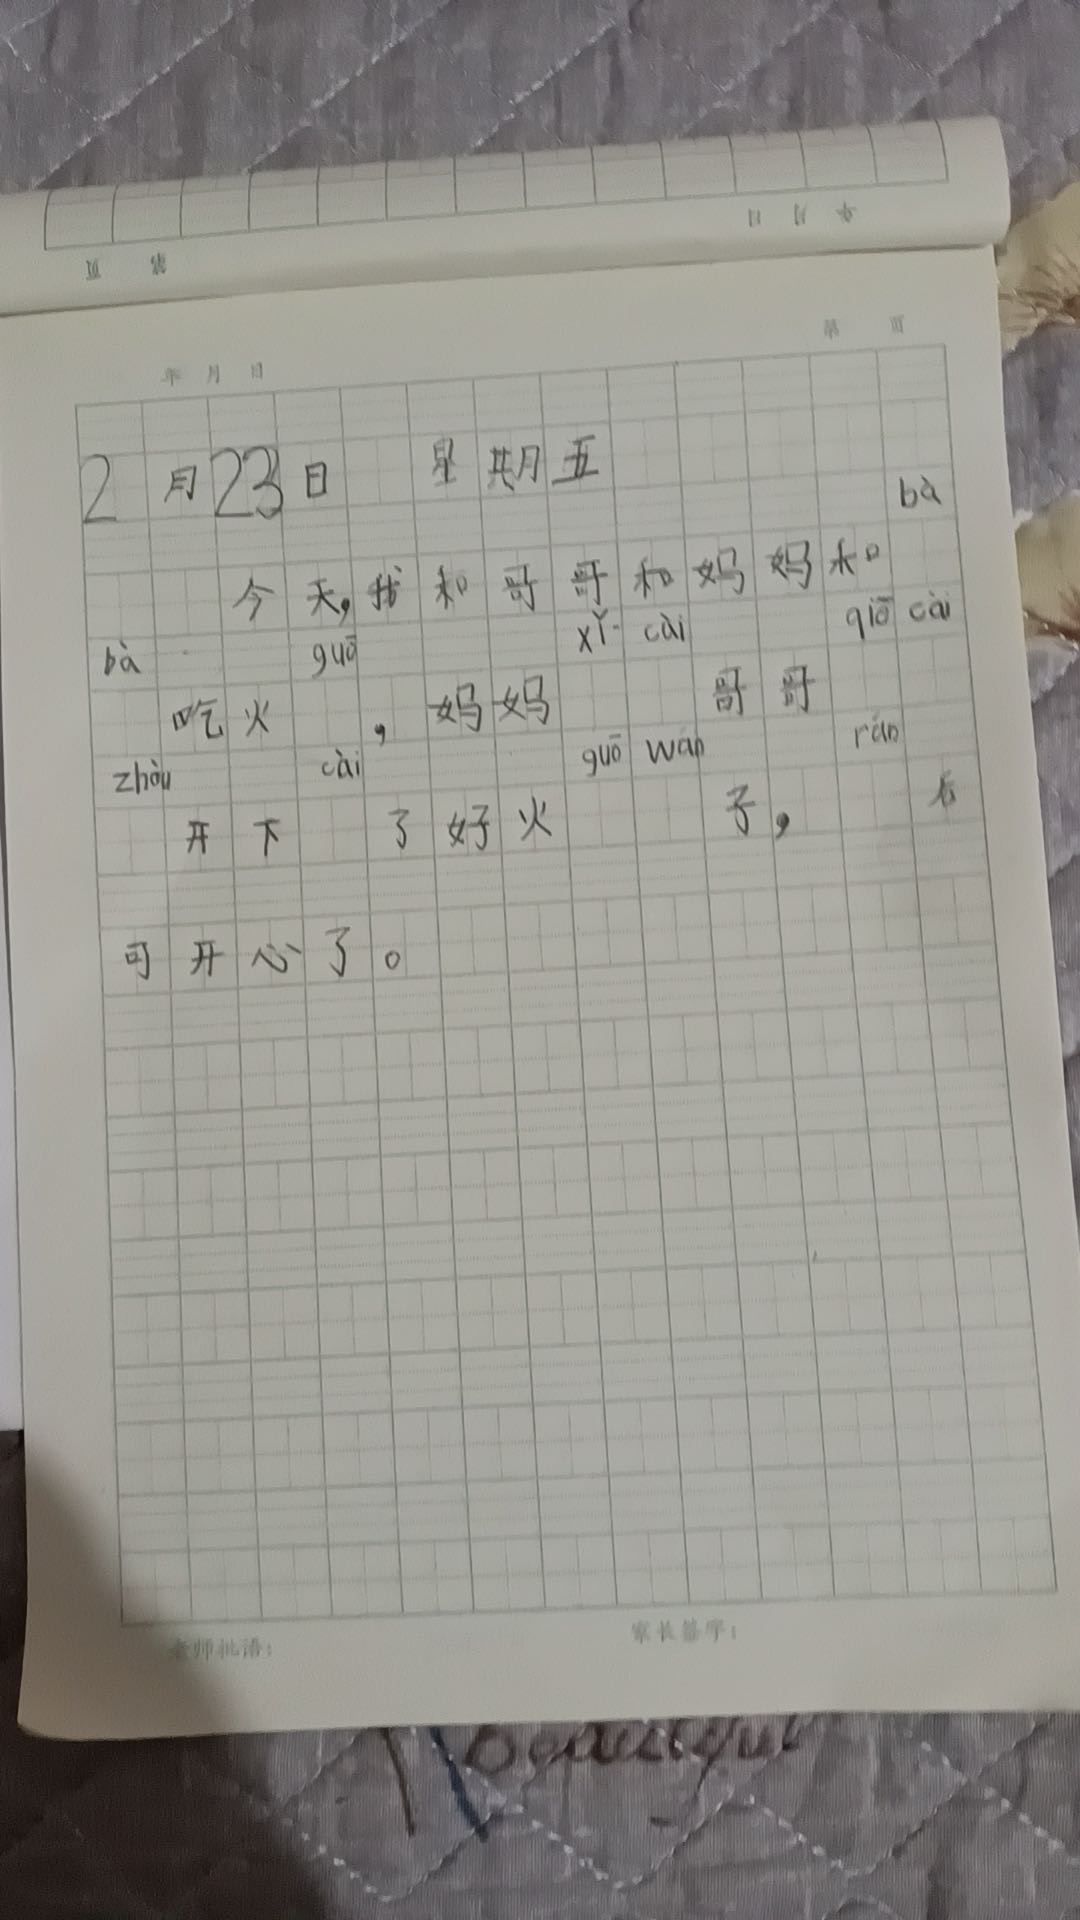 年 月 日
第 页
年 月 日
第 页
2月23日 星期五
今天,我和哥哥和妈妈和bà
bà吃火guō,妈妈xǐ cài哥哥qiē cài
zhòu开下cài了好火guō wán子,rán后
可开心了。
老师批语:
家长签字:
Beautiful